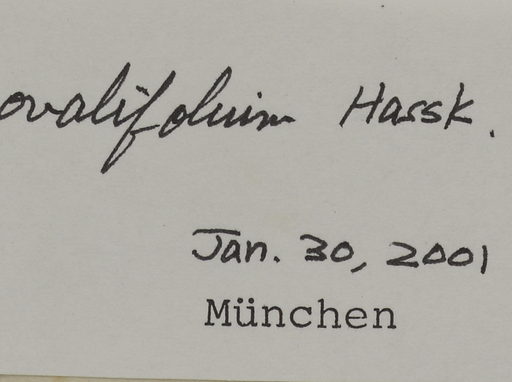 ovalifolium Hassk.
Jan. 30, 2001
München